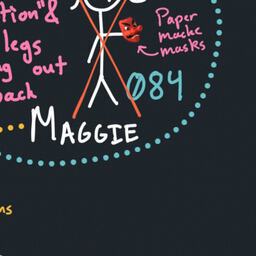 tion"&
legs
g out
back
Paper
mache
masks
084
MAGGIE
ns